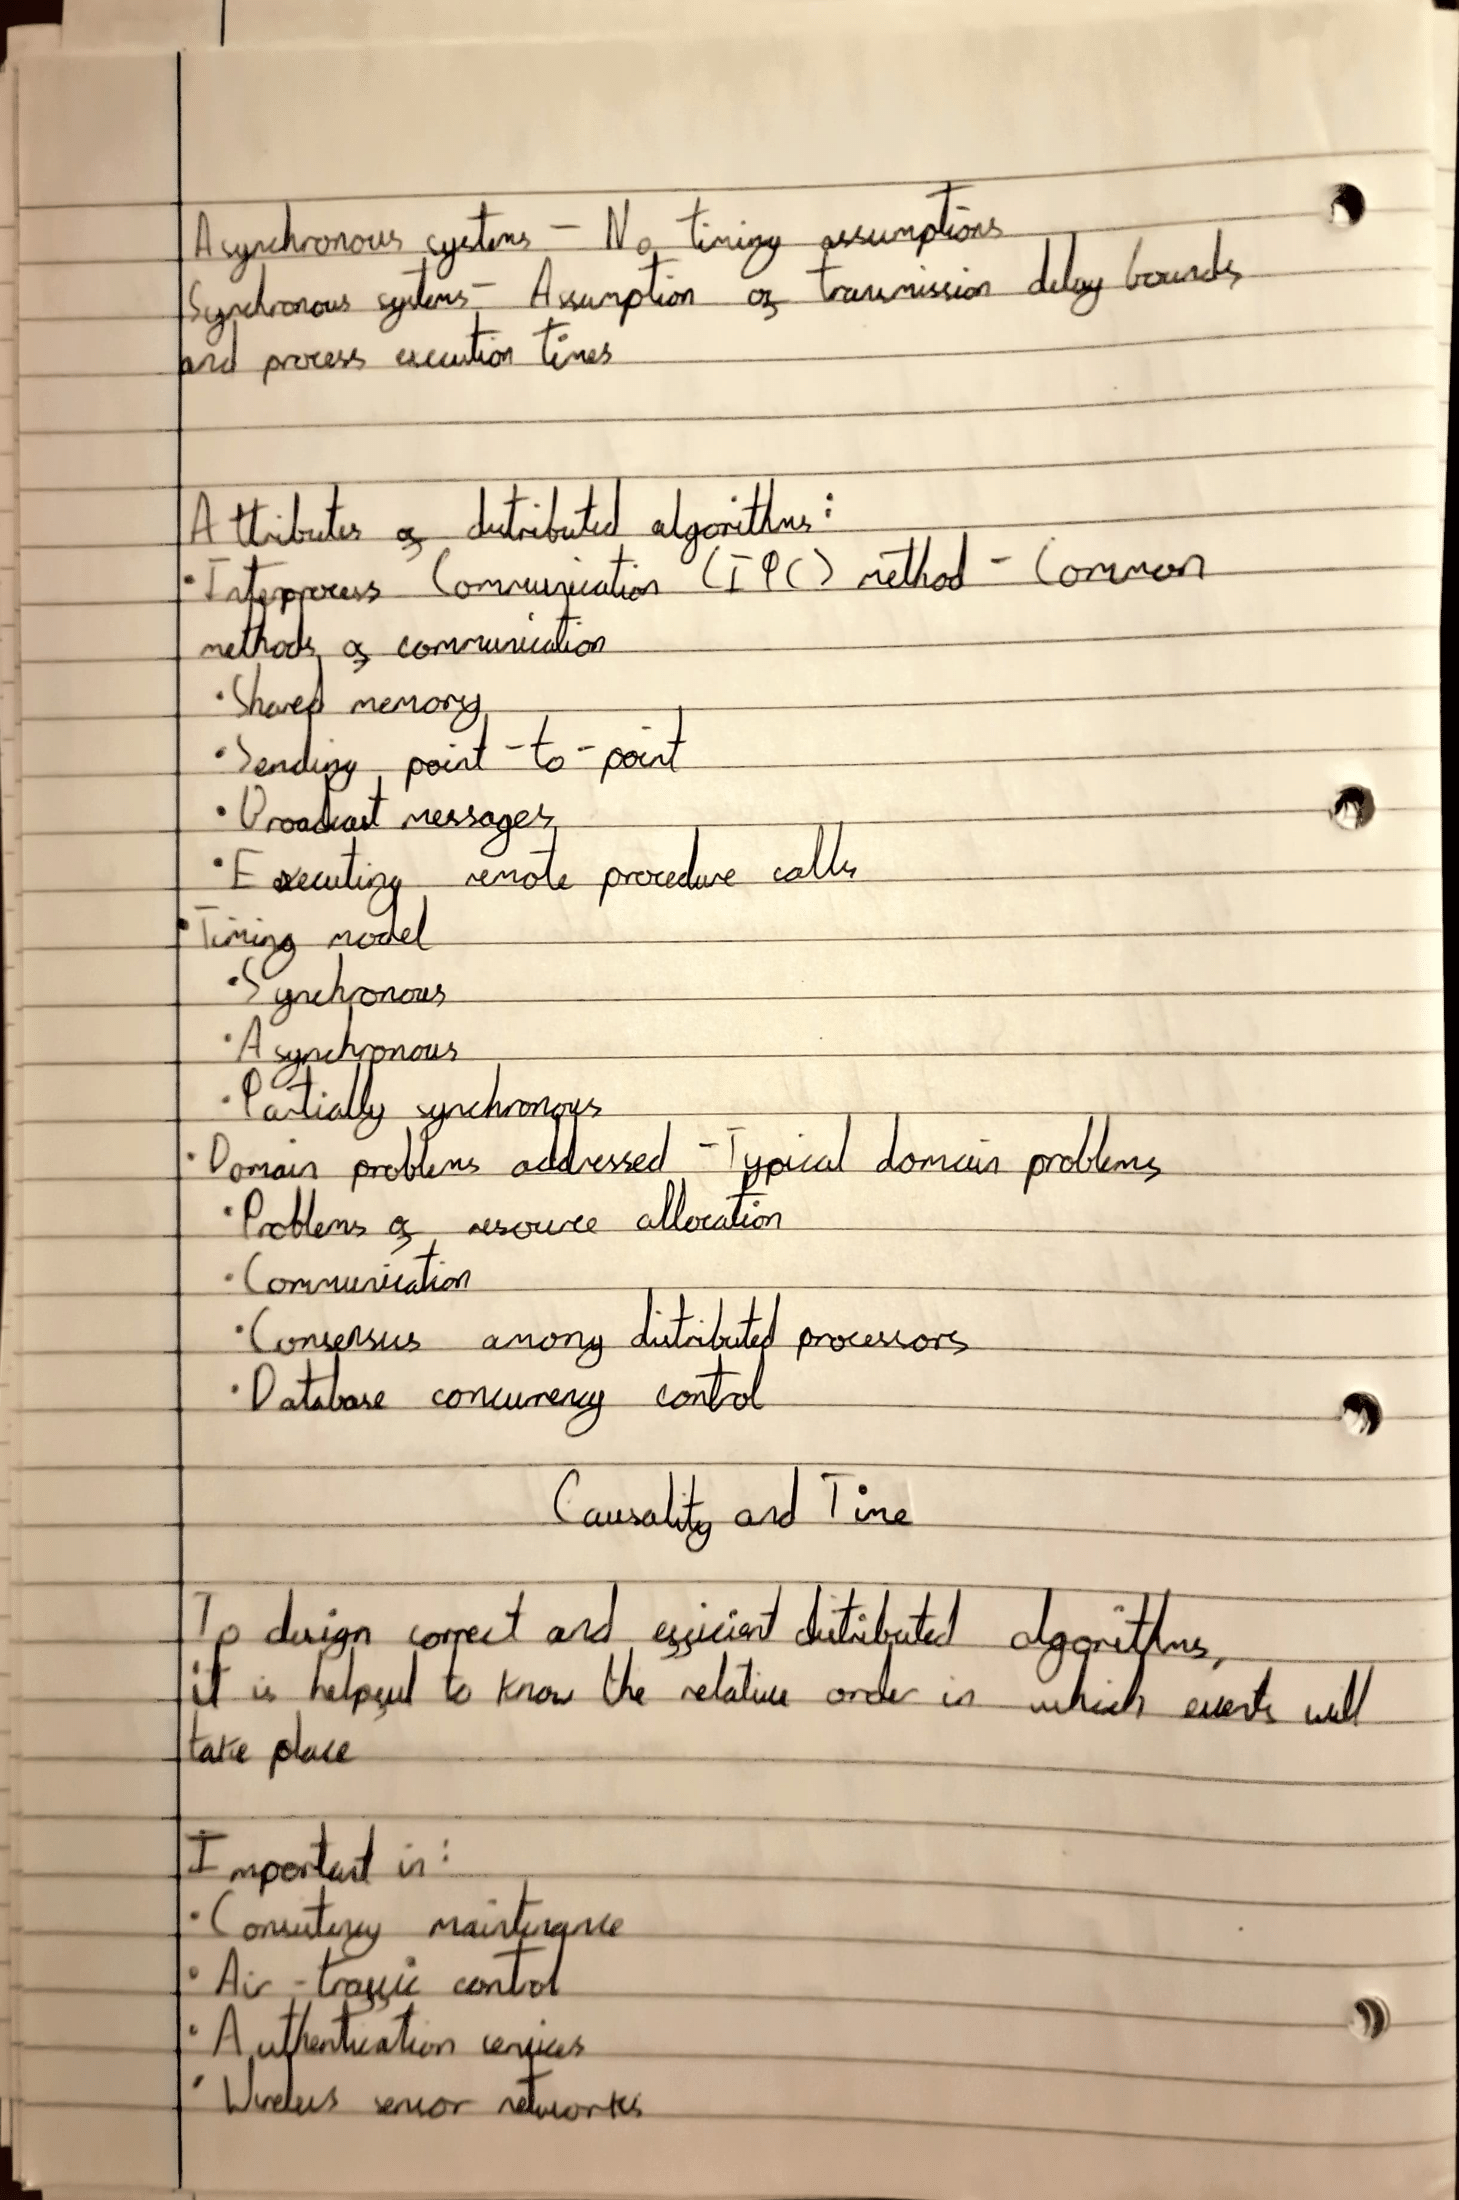 Asynchronous systems - No timing assumptions
Synchronous systems - Assumption of transmission delay bounds
and process execution times
Attributes of distributed algorithms:
• Interprocess Communication (IPC) method - Common
methods of communication
• Shared memory
• Sending point-to-point
• Broadcast messages
• Executing remote procedure calls
• Timing model
• Synchronous
• Asynchronous
• Partially synchronous
• Domain problems addressed - Typical domain problems
• Problems of resource allocation
• Communication
• Consensus among distributed processors
• Database concurrency control
Causality and Time
To design correct and efficient distributed algorithms,
it is helpful to know the relative order in which events will
take place
Important in:
• Consistency maintenance
• Air-traffic control
• Authentication services
• Wireless sensor networks